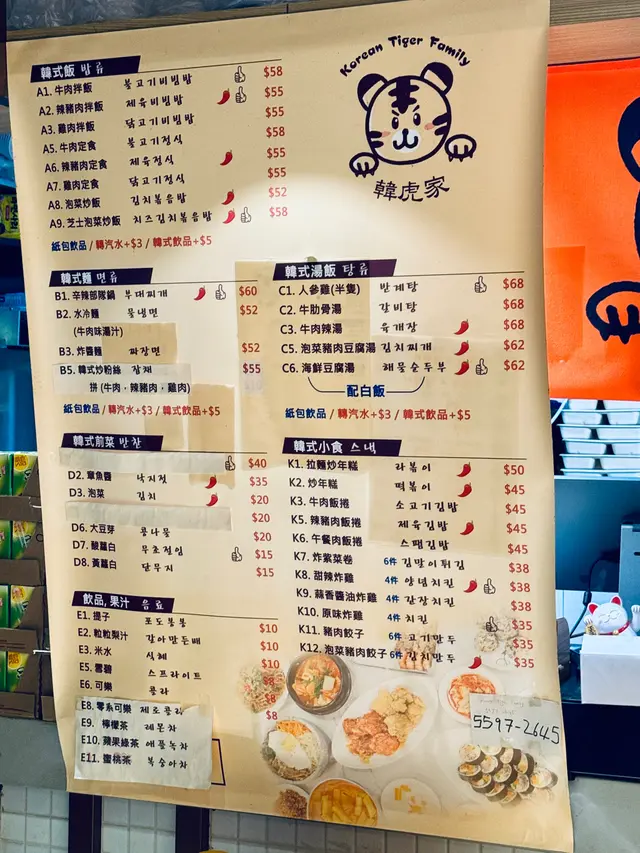 Korean Tiger Family
韓虎家
韓式飯 밥류
A1. 牛肉拌飯 불고기비빔밥 $58
A2. 辣豬肉拌飯 제육비빔밥 $55
A3. 雞肉拌飯 닭고기비빔밥 $55
A5. 牛肉定食 불고기정식 $58
A6. 辣豬肉定食 제육정식 $55
A7. 雞肉定食 닭고기정식 $55
A8. 泡菜炒飯 김치볶음밥 $52
A9. 芝士泡菜炒飯 치즈김치볶음밥 $58
紙包飲品 / 轉汽水+$3 / 韓式飲品+$5
韓式麵 면류
B1. 辛辣部隊鍋 부대찌개 $60
B2. 水冷麵 물냉면 $52
(牛肉味湯汁)
B3. 炸醬麵 짜장면 $52
B5. 韓式炒粉絲 잡채 $55
拼 (牛肉，辣豬肉，雞肉)
紙包飲品 / 轉汽水+$3 / 韓式飲品+$5
韓式湯飯 탕류
C1. 人參雞(半隻) 반계탕 $68
C2. 牛肋骨湯 갈비탕 $68
C3. 牛肉辣湯 육개장 $68
C5. 泡菜豬肉豆腐湯 김치찌개 $62
C6. 海鮮豆腐湯 해물순두부 $62
配白飯
紙包飲品 / 轉汽水+$3 / 韓式飲品+$5
韓式前菜 반찬
$40
D2. 章魚醬 낙지젓 $35
D3. 泡菜 김치 $20
$20
D6. 大豆芽 콩나물 $20
D7. 酸蘿白 무초절임 $15
D8. 黃蘿白 단무지 $15
韓式小食 스낵
K1. 拉麵炒年糕 라볶이 $50
K2. 炒年糕 떡볶이 $45
K3. 牛肉飯捲 소고기김밥 $45
K5. 辣豬肉飯捲 제육김밥 $45
K6. 午餐肉飯捲 스팸김밥 $45
K7. 炸紫菜卷 6件 김말이튀김 $38
K8. 甜辣炸雞 4件 양념치킨 $38
K9. 蒜香醬油炸雞 4件 간장치킨 $38
K10. 原味炸雞 4件 치킨 $35
K11. 豬肉餃子 6件 고기만두 $35
K12. 泡菜豬肉餃子 6件 김치만두 $35
飲品, 果汁 음료
E1. 提子 포도봉봉 $10
E2. 粒粒梨汁 갈아만든배 $10
E3. 米水 식혜 $10
E5. 雪碧 스프라이트 $8
E6. 可樂 콜라 $8
E8. 零系可樂 제로콜라
E9. 檸檬茶 레몬차
E10. 蘋果綠茶 애플녹차
E11. 蜜桃茶 복숭아차
5597-2645